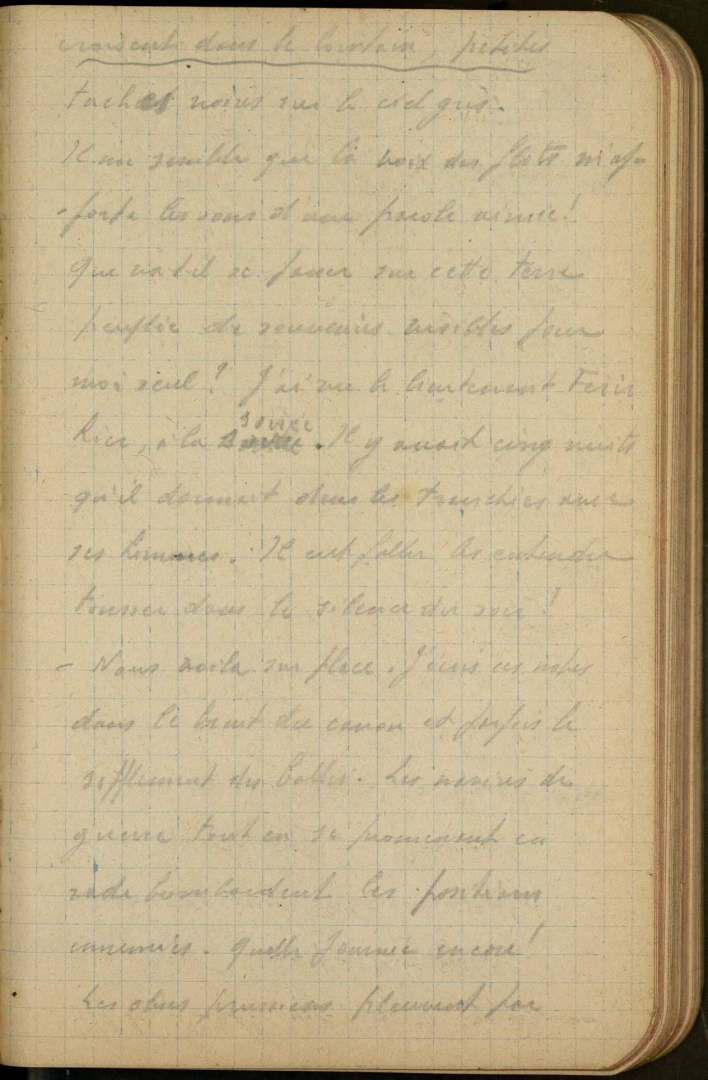 croisent dans le lointain, petites
taches noires sur le ciel gris.
Il me semble que la voix des flots m'ap-
-porte les sons d'une parole aimée!
Que va t il se passer sur cette terre
peuplée de souvenirs visibles pour
moi seul! J'ai vu le lieutenant
hier, à la soirée. Il y avait cinq nuits
qu'il dormait dans les tranchées avec
ses hommes. Il eut fallu les entendre
tousser dans le silence du soir!
- Nous voila sur place. J'écris ces notes
dans le bruit du canon et parfois le
sifflement des balles. Les navires de
guerre tout en se promenant en
rade bombardent les positions
ennemies. Quelle journée encore!
Les obus prussiens pleuvent par